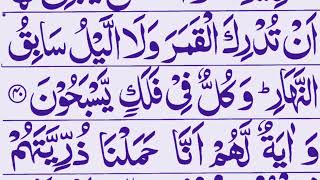 اَنْ تُدْرِكَ الْقَمَرَ وَلَا الَّيْلُ سَابِقُ
النَّهَارِ ؕ وَكُلٌّ فِىْ فَلَكٍ يَّسْبَحُوْنَ ۴۰
وَاٰيَةٌ لَّهُمْ اَنَّا حَمَلْنَا ذُرِّيَّتَهُمْ